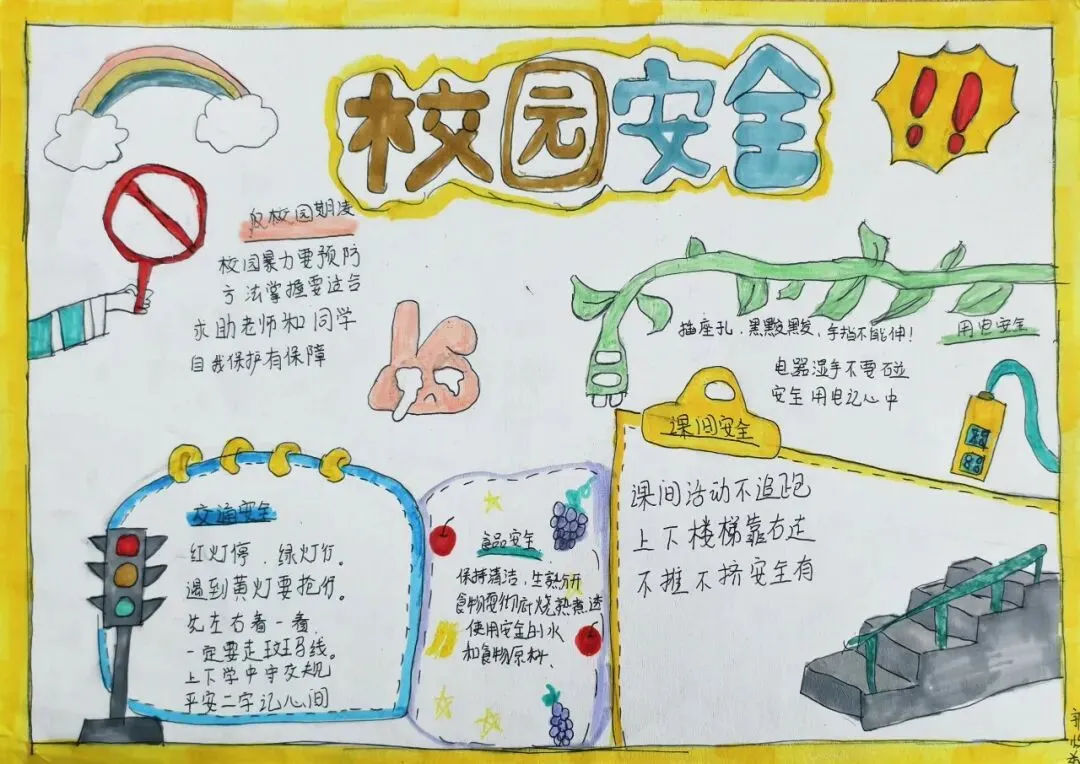 校园安全
!!
反校园期凌
校园暴力要预防
方法掌握要适合
求助老师和同学
自我保护有保障
用电安全
插座孔，黑黢黢，手指不能伸！
电器湿手不要碰
安全用电记心中
交通安全
红灯停，绿灯行。
遇到黄灯要抢行。
先左右看一看，
一定要走斑马线。
上下学中守交规
平安二字记心间
食品安全
保持清洁，生熟分开
食物需彻底烧熟煮透
使用安全的水
和食物原料。
课间安全
课间活动不追跑
上下楼梯靠右走
不推不挤安全有